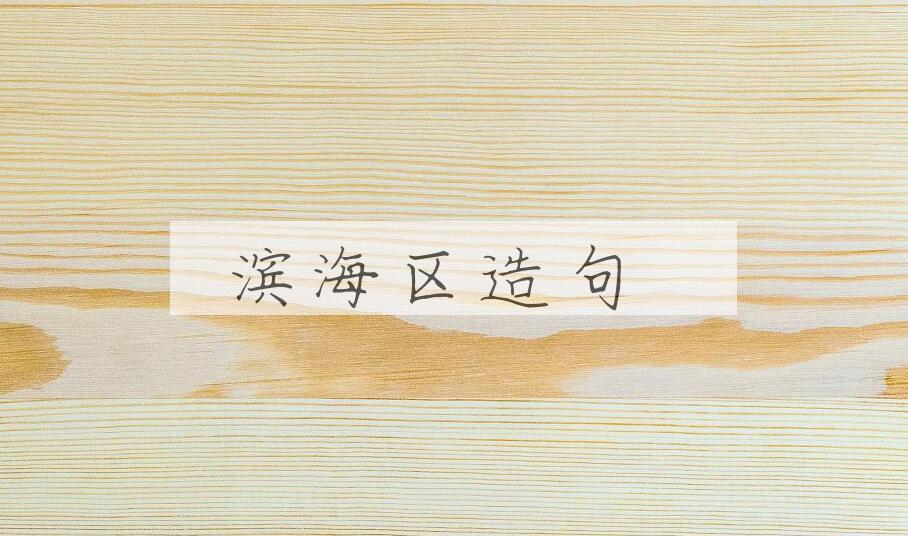 滨海区造句